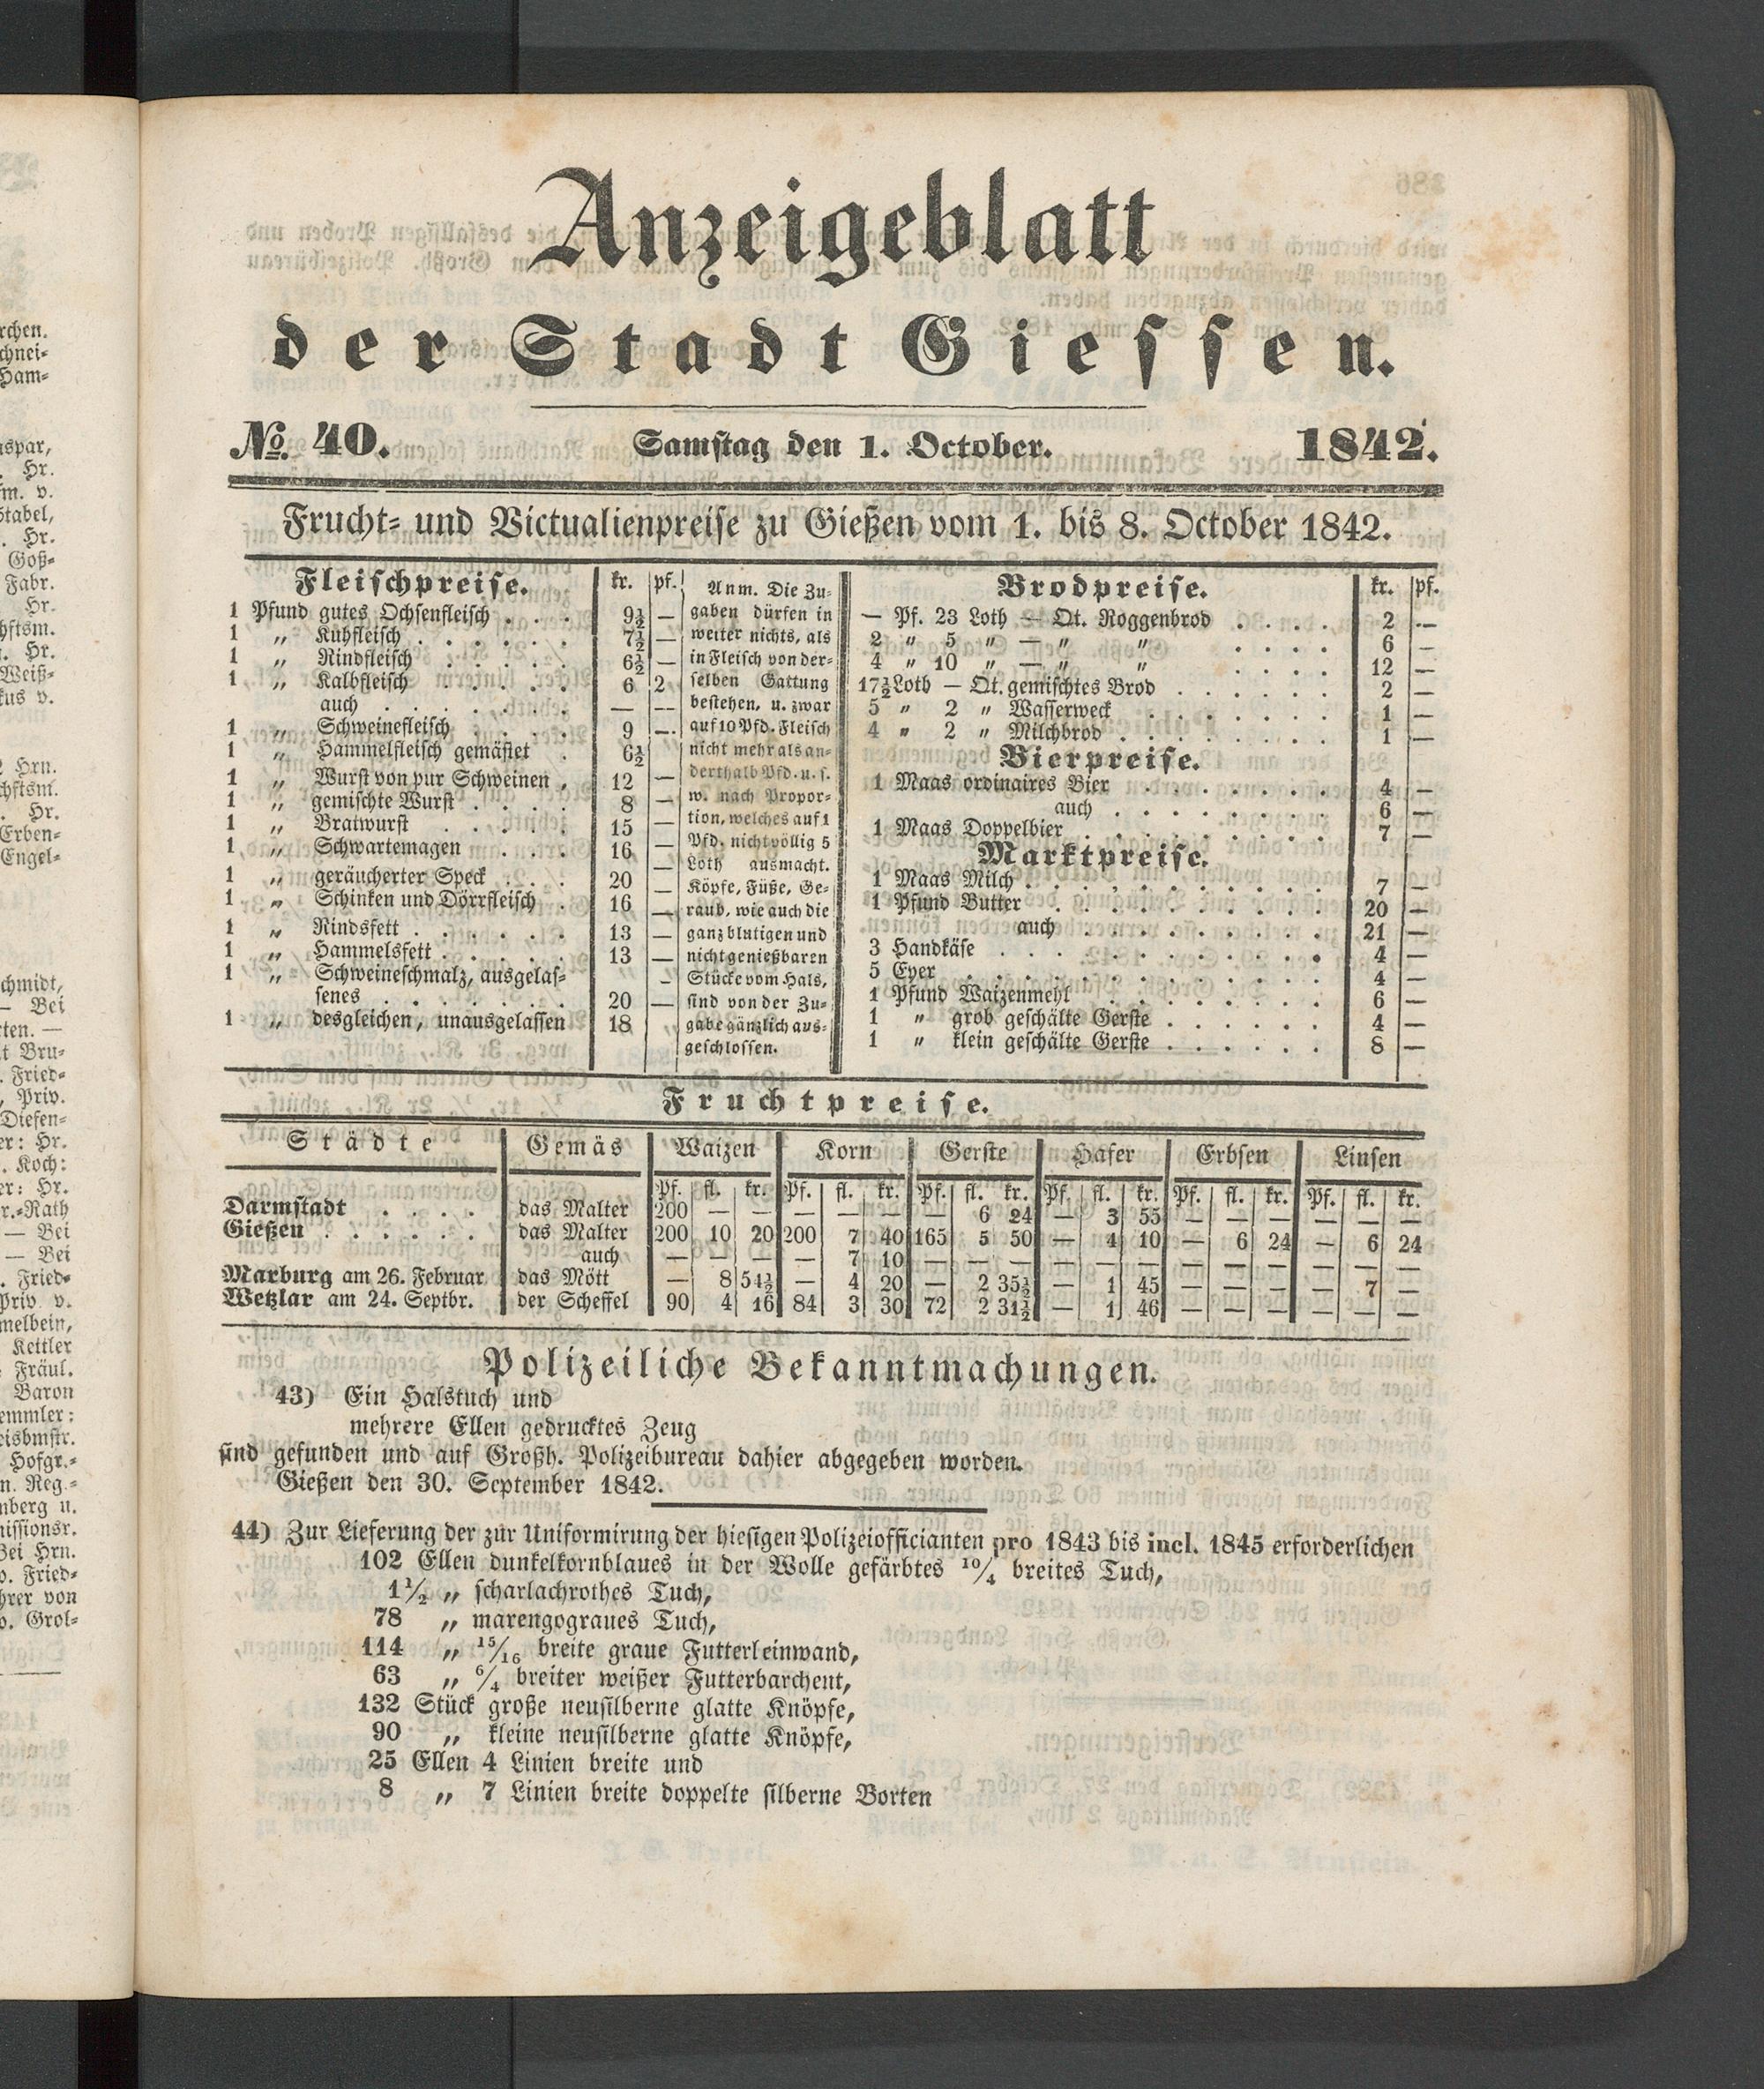 Anzeigeblatt
der Stadt Giessen.
No. 40. Samstag den 1. October. 1842.
Frucht- und Victualienpreise zu Gießen vom 1. bis 8. October 1842.
Fleischpreise. kr. pf.
1 Pfund gutes Ochsenfleisch . . . 9½ —
1 „ Kuhfleisch . . . . . 7½ —
1 „ Rindfleisch . . . . . 6½ —
1 „ Kalbfleisch . . . . . 6 2
auch . . . . . . . — —
1 „ Schweinefleisch . . . . 9 —
1 „ Hammelfleisch gemästet . 6½
1 „ Wurst von pur Schweinen , 12 —
1 „ gemischte Wurst . . . . 8 —
1 „ Bratwurst . . . . . 15 —
1 „ Schwartemagen . . . 16 —
1 „ geräucherter Speck . . . 20 —
1 „ Schinken und Dörrfleisch . 16 —
1 „ Rindsfett . . . . . . 13 —
1 „ Hammelsfett . . . . . 13 —
1 „ Schweineschmalz, ausgelas-
senes . . . . . . . 20 —
1 „ desgleichen, unausgelassen 18
Anm. Die Zu-
gaben dürfen in
weiter nichts, als
in Fleisch von der-
selben Gattung
bestehen, u. zwar
auf 10 Pfd. Fleisch
nicht mehr als an-
derthalb Pfd. u. s.
w. nach Propor-
tion, welches auf 1
Pfd. nicht völlig 5
Loth ausmacht.
Köpfe, Füße, Ge-
raub, wie auch die
ganz blutigen und
nicht genießbaren
Stücke vom Hals,
sind von der Zu-
gabe gänzlich aus-
geschlossen.
Brodpreise. kr. pf.
— Pf. 23 Loth — Qt. Roggenbrod . . . . 2 —
2 „ 5 „ — „ „ . . . . 6 —
4 „ 10 „ — „ „ . . . . 12 —
17½ Loth — Qt. gemischtes Brod . . . . . . 2 —
5 „ 2 „ Wasserweck . . . . . . . 1 —
4 „ 2 „ Milchbrod . . . . . . . . 1 —
Bierpreise.
1 Maas ordinaires Bier . . . . . . . 4 —
auch . . . . . . . . 6 —
1 Maas Doppelbier . . . . . . . . . 7 —
Marktpreise.
1 Maas Milch . . . . . . . . . . . 7 —
1 Pfund Butter . . . . . . . . . . 20 —
auch . . . . . . . . . 21 —
3 Handkäse . . . . . . . . . . . 4 —
5 Eyer . . . . . . . . . . . . . 4 —
1 Pfund Waizenmehl . . . . . . . . 6 —
1 „ grob geschälte Gerste . . . . . . 4 —
1 „ klein geschälte Gerste . . . . . . 8 —
Fruchtpreise.
Städte Gemäs Waizen Korn Gerste Hafer Erbsen Linsen
Pf. fl. kr. Pf. fl. kr. Pf. fl. kr. Pf. fl. kr. Pf. fl. kr. Pf. fl. kr.
Darmstadt . . . . das Malter 200 — — — — — — 6 24 — 3 55 — — — — — —
Gießen . . . . . . das Malter 200 10 20 200 7 40 165 5 50 — 4 10 — 6 24 — 6 24
auch — — — — 7 10 — — — — — — — — — — — —
Marburg am 26. Februar das Mött — 8 54½ — 4 20 — 2 35½ — 1 45 — — — — 7 —
Wetzlar am 24. Septbr. der Scheffel 90 4 16 84 3 30 72 2 31½ — 1 46 — — — — — —
Polizeiliche Bekanntmachungen.
43) Ein Halstuch und
mehrere Ellen gedrucktes Zeug
sind gefunden und auf Großh. Polizeibureau dahier abgegeben worden.
Gießen den 30. September 1842.
44) Zur Lieferung der zur Uniformirung der hiesigen Polizeiofficianten pro 1843 bis incl. 1845 erforderlichen
102 Ellen dunkelkornblaues in der Wolle gefärbtes 10/4 breites Tuch,
1½ „ scharlachrothes Tuch,
78 „ marengograues Tuch,
114 „ 15/16 breite graue Futterleinwand,
63 „ 6/4 breiter weißer Futterbarchent,
132 Stück große neusilberne glatte Knöpfe,
90 „ kleine neusilberne glatte Knöpfe,
25 Ellen 4 Linien breite und
8 „ 7 Linien breite doppelte silberne Borten